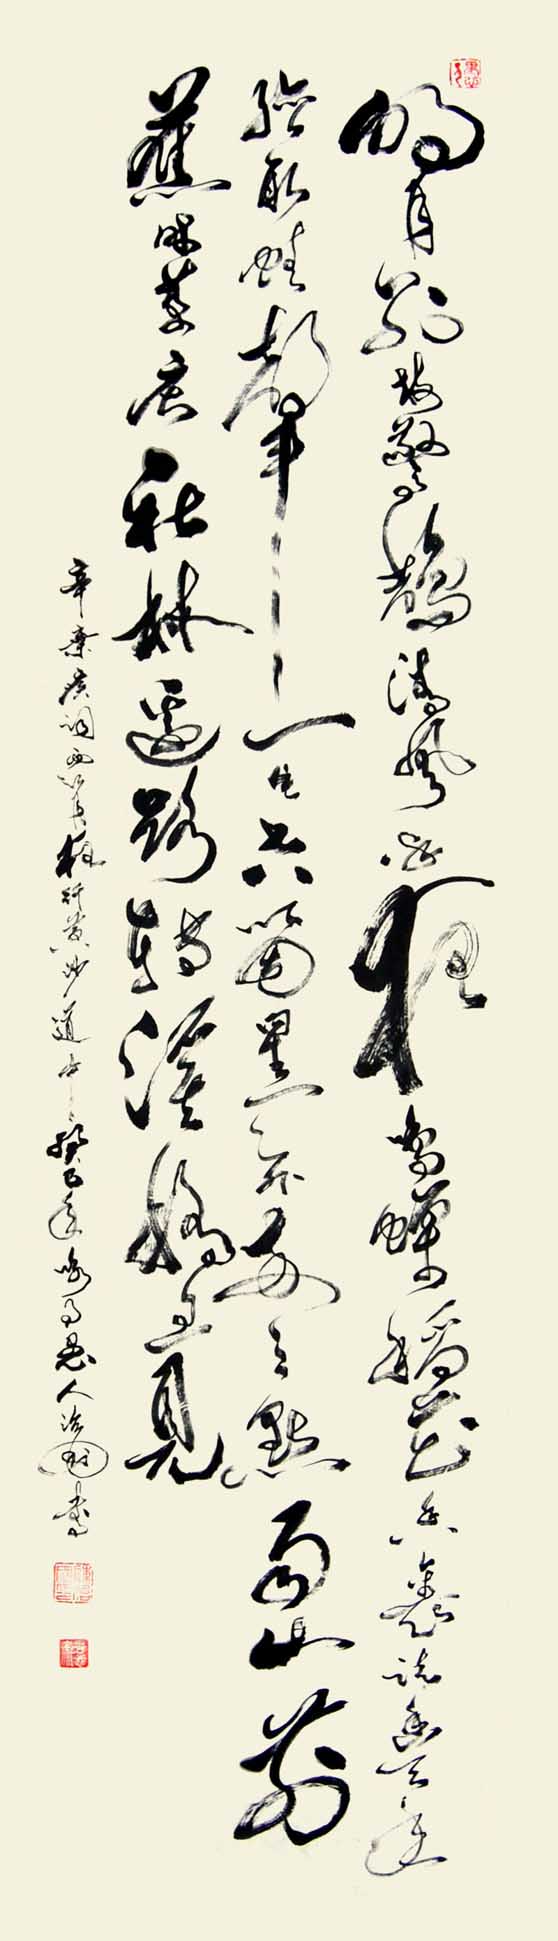 明月别枝惊鹊清风半夜鸣蝉稻花香里说丰年
听取蛙声一片七八个星天外两三点雨山前
旧时茅店社林边路转溪桥忽见
辛弃疾词西江月夜行黄沙道中癸巳年 愚人 书